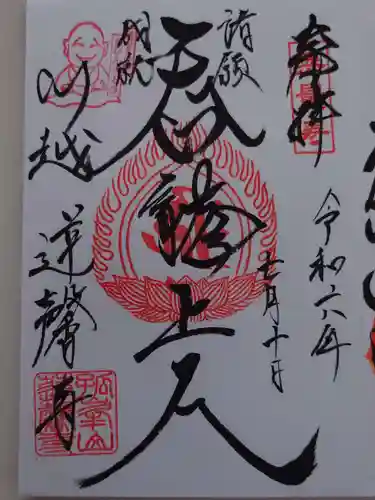 奉拝
令和六年
七月十日
諸願
呑龍上人
川越
蓮馨寺
孤峯山
蓮馨寺